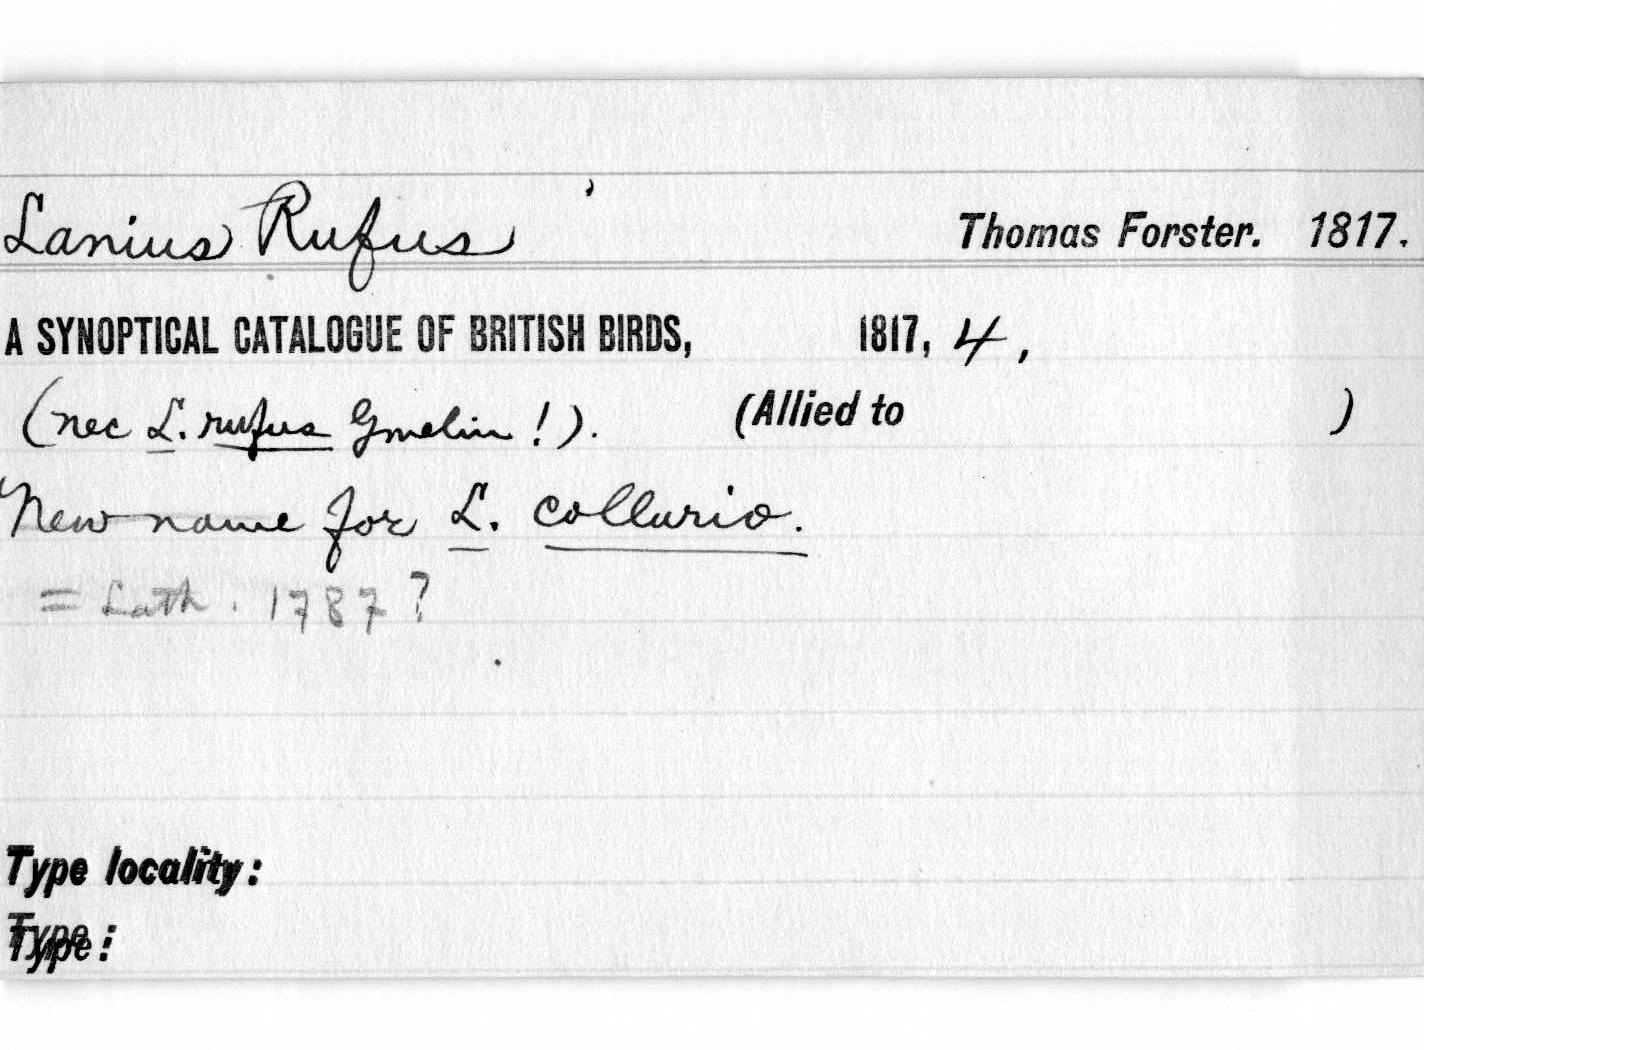 Lanius Rufus Thomas Forster. 1817.
A SYNOPTICAL CATALOGUE OF BRITISH BIRDS, 1817, 4,
(nec L. rufus Gmelin!). (Allied to )
New name for L. collurio.
= Lath. 1787?
Type locality:
Type: